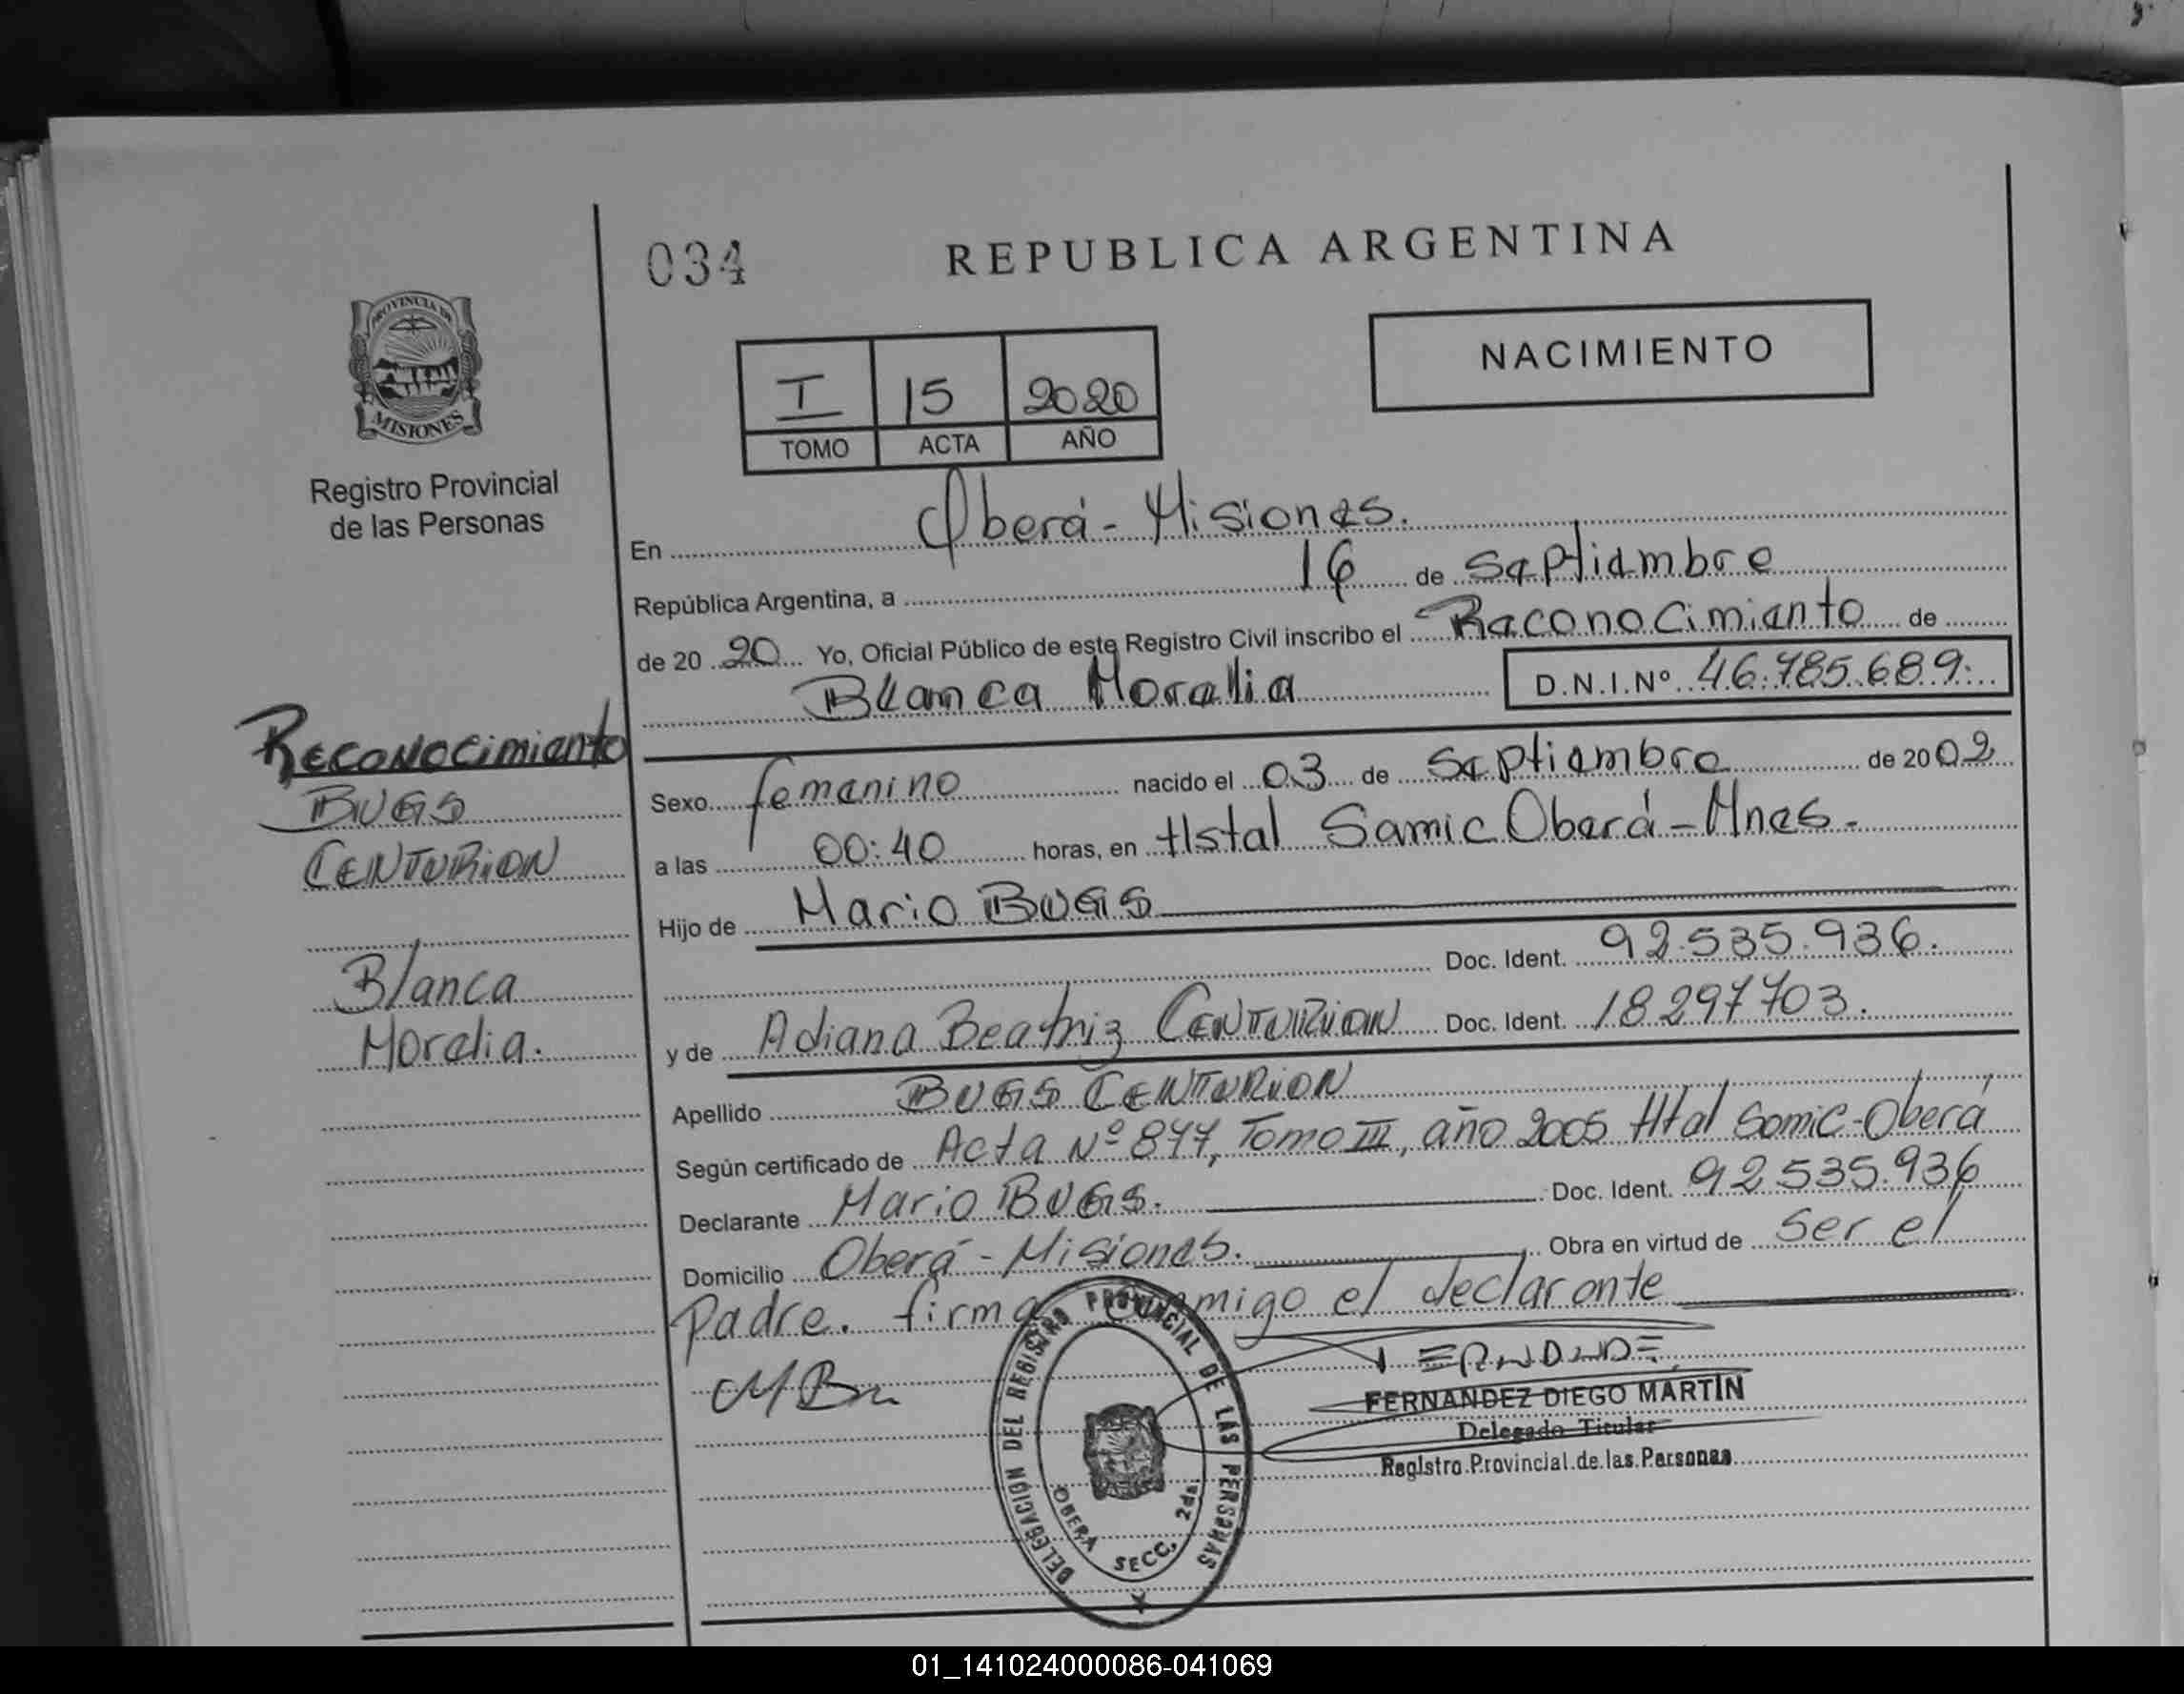 034
REPUBLICA ARGENTINA
PROVINCIA DE
MISIONES
Registro Provincial
de las Personas
NACIMIENTO
I 15 2020
TOMO ACTA AÑO
En Oberá - Misiones.
República Argentina, a 16 de Septiembre
de 20 20 Yo, Oficial Público de este Registro Civil inscribo el Reconocimiento de
Blanca Morelia D.N.I.Nº 46.785.689.
Reconocimiento
BUGS
CENTURION
Blanca
Morelia.
Sexo femenino nacido el 03 de Septiembre de 20 02
a las 00:40 horas, en Hstal Samic Oberá - Mnes.
Hijo de Mario BUGS
Doc. Ident. 92.535.936.
y de Adiana Beatriz CENTURION Doc. Ident. 18.297.703.
Apellido BUGS CENTURION
Según certificado de Acta Nº 877, Tomo III, año 2005 Htal Samic-Oberá
Declarante Mario BUGS. Doc. Ident. 92.535.936
Domicilio Oberá - Misiones. Obra en virtud de ser el
Padre. firma Conmigo el declarante
FERNANDEZ DIEGO MARTÍN
Delegado Titular
Registro Provincial de las Personas
DELEGACION DEL REGISTRO PROVINCIAL DE LAS PERSONAS
OBERA SECC. 2da.
01_141024000086-041069